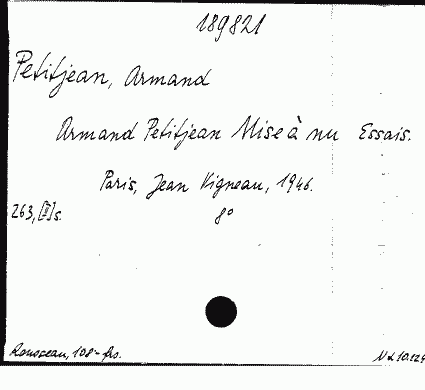 189821
Petitjean, Armand
Armand Petitjean Mise à nu Essais.
Paris, Jean Vigneau, 1946.
263,[II]s. 8°
Rousseau, 108- frs.